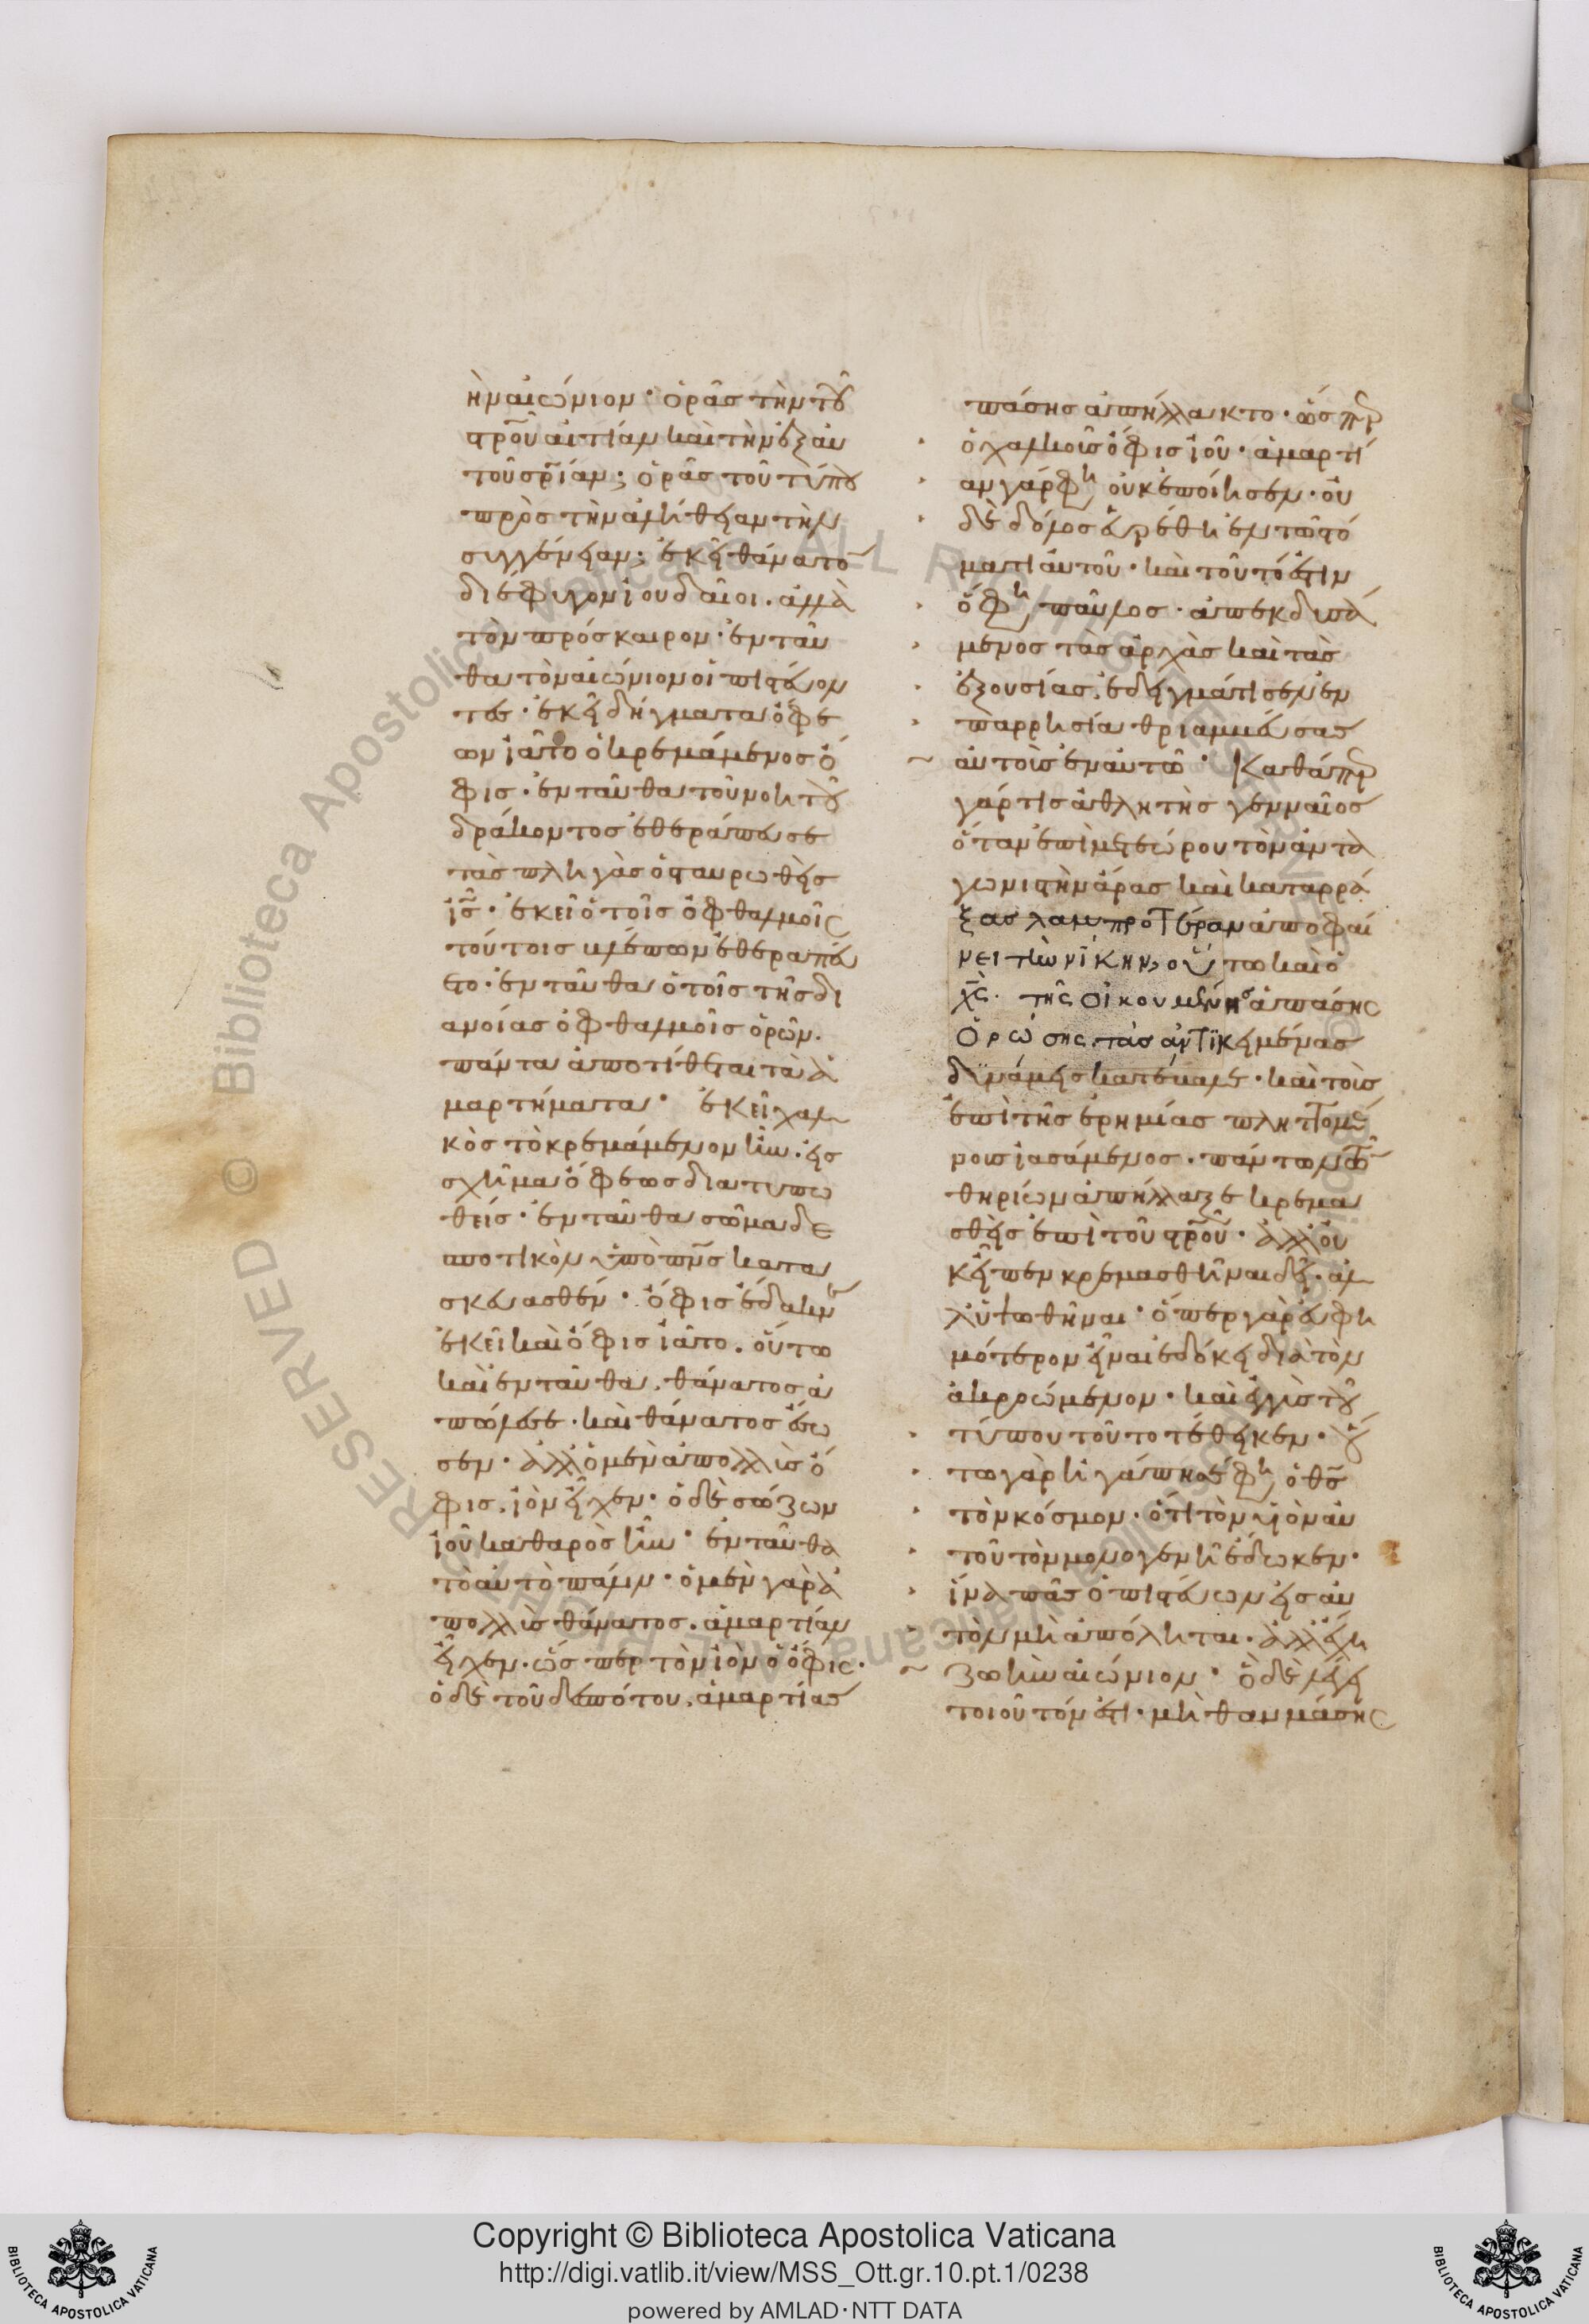 ἡν αἰώνιον· ὁρᾶς τὴν τοῦ
σταυροῦ αἰτίαν καὶ τὴν ἐξ αὐ
τοῦ σρίαν; ὁρᾶς τοῦ τύπου
πρὸς τὴν ἀλήθειαν τὴν
συγγένειαν; ἐκεῖ θάνατον
διέφυγον ἰουδαῖοι. ἀλλὰ
τὸν πρόσκαιρον· ἐνταῦ
θα τὸν αἰώνιον οἱ πιστεύον
τες· ἐκεῖ δήγματα ὄφε
ων ἰᾶτο ὁ κρεμάμενος ὄ
φις· ἐνταῦθα τοῦ νοητοῦ
δράκοντος ἐθεράπευσε
τὰς πληγὰς ὁ σταυρωθεὶς
ἰς̅· ἐκεῖ ὁ τοῖς ὀφθαλμοῖς
τούτοις βλέπων ἐθεραπεύ
ετο· ἐνταῦθα ὁ τοῖς τῆς δι
ανοίας ὀφθαλμοῖς ὁρῶν.
πάντα ἀποτίθεται τὰ ἁ
μαρτήματα· ἐκεῖ χαλ
κὸς τὸ κρεμάμενον ἦν· εἰς
σχῆμα ὄφεως διατυπω
θείς· ἐνταῦθα σῶμα δε
σποτικὸν ὑπὸ πν̅ς κατα
σκευασθέν· ὄφις ἔδακνε
ἐκεῖ καὶ ὄφις ἰᾶτο. οὕτω
καὶ ἐνταῦθα. θάνατος ἀ
πώλεσε· καὶ θάνατος ἔσω
σεν· ἀλλ' ὁ μὲν ἀπολλὺς ὄ
φις. ἰὸν εἶχεν· ὁ δὲ σώζων
ἰοῦ καθαρὸς ἦν· ἐνταῦθα
τὸ αὐτὸ πάλιν· ὁ μὲν γὰρ ἀ
πολλὺς θάνατος. ἁμαρτίαν
εἶχεν· ὥσπερ τὸν ἰὸν ὁ ὄφις·
ὁ δὲ τοῦ δεσπότου. ἁμαρτίας
πάσης ἀπήλλακτο· ὥσπερ
ὁ χαλκοῦς ὄφις ἰοῦ· ἁμαρτί
αν γάρ φη οὐκ ἐποίησεν· οὐ
δὲ δόλος εὑρέθη ἐν τῶ στό
ματι αὐτοῦ· καὶ τοῦτό ἐστιν
ὅ φη παῦλος· ἀπεκδυσά
μενος τὰς ἀρχὰς καὶ τὰς
ἐξουσίας. ἐδειγμάτισεν ἐν
παρρησία θριαμβεύσας
αὐτοὺς ἐν αὐτῶ· Καθάπερ
γάρ τις ἀθλητὴς γενναῖος
ὅταν ἐπὶ μετεώρου τὸν ἀντα
γωνιστὴν ἄρας καὶ καταρρά
ξας λαμπροτέραν ἀποφαί
νει τὴν νίκην, οὕτω καὶ ὁ
χς̅. τῆς οἰκουμένης ἁπάσης
ὁρώσης. τὰς ἀντικειμένας
δυνάμεις κατέβαλε· καὶ τοὺς
ἐπὶ τῆς ἐρημίας πληττομέ
νους ἰασάμενος. πάντων τῶν
θηρίων ἀπήλλαξε κρεμα
σθεὶς ἐπὶ τοῦ σταυροῦ· ἀλλ' οὐ
κ εἶπεν κρεμασθῆναι δεῖ. ἀλ
λ' ὑψωθῆναι· ὅπερ γὰρ εὐφη
μότερον εἶναι ἐδόκει διὰ τὸν
ἀκροώμενον· καὶ ἐγγὺς τοῦ
τύπου τοῦτο τέθεικεν· οὕ
τω γὰρ ἠγάπησέ φη ὁ θς̅
τὸν κόσμον· ὅτι τὸν υἱὸν αὐ
τοῦ τὸν μονογενῆ ἔδωκεν·
ἵνα πᾶς ὁ πιστεύων εἰς αὐ
τὸν μὴ ἀπόληται. ἀλλ' ἔχη
ζωὴν αἰώνιον· ὃ δὲ λέγει
τοιοῦτόν ἐστι· μὴ θαυμάσης
Copyright © Biblioteca Apostolica Vaticana
http://digi.vatlib.it/view/MSS_Ott.gr.10.pt.1/0238
powered by AMLAD·NTT DATA